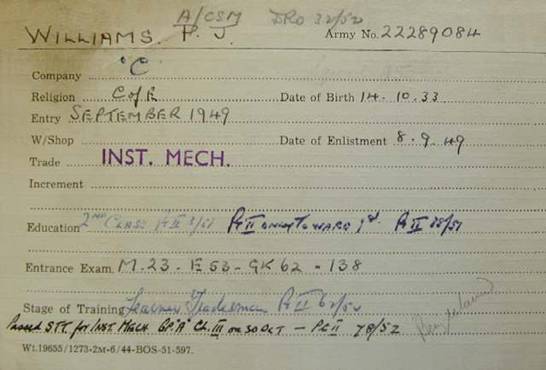 A/CSM DRO 32/52
WILLIAMS. P. J. Army No. 22289084
Company "C"
Religion C of E Date of Birth 14. 10. 33
Entry SEPTEMBER 1949
W/Shop Date of Enlistment 8. 9. 49
Trade INST. MECH.
Increment
Education 2ND CLASS Pt II 3/51 Pt II ONLY TOWARD 1st Pt II 38/51
Entrance Exam. M.23. E 53. GK 62 = 138
Stage of Training Learner Tradesman Pt II 62/50
Passed STT for INST. MECH GP 'A' CL III on 30 OCT — Pt II 78/52
Wt.19655/1273-2M-6/44-BOS-51-597.